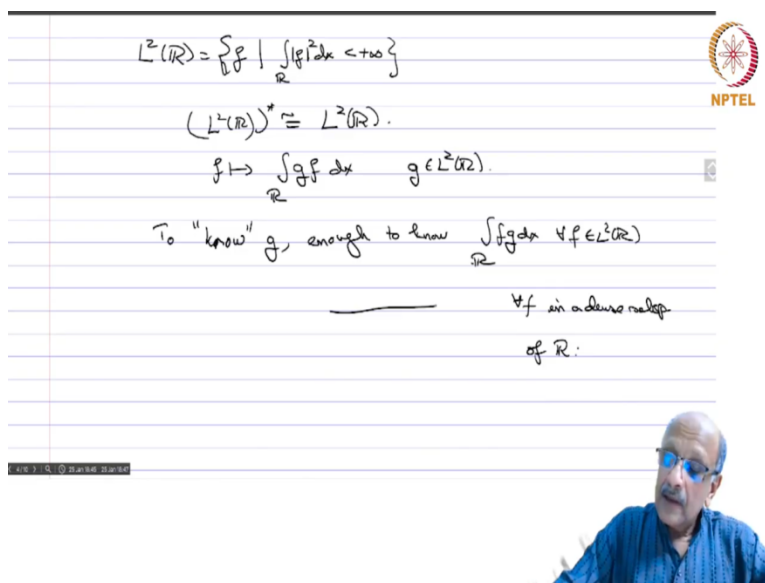 L²(ℝ) = {f | ∫_ℝ |f|² dx < +∞}
NPTEL
(L²(ℝ))* ≅ L²(ℝ).
f ↦ ∫_ℝ gf dx    g ∈ L²(ℝ).
To "know" g, enough to know ∫_ℝ fg dx ∀f ∈ L²(ℝ)
∀f in a dense
of ℝ.